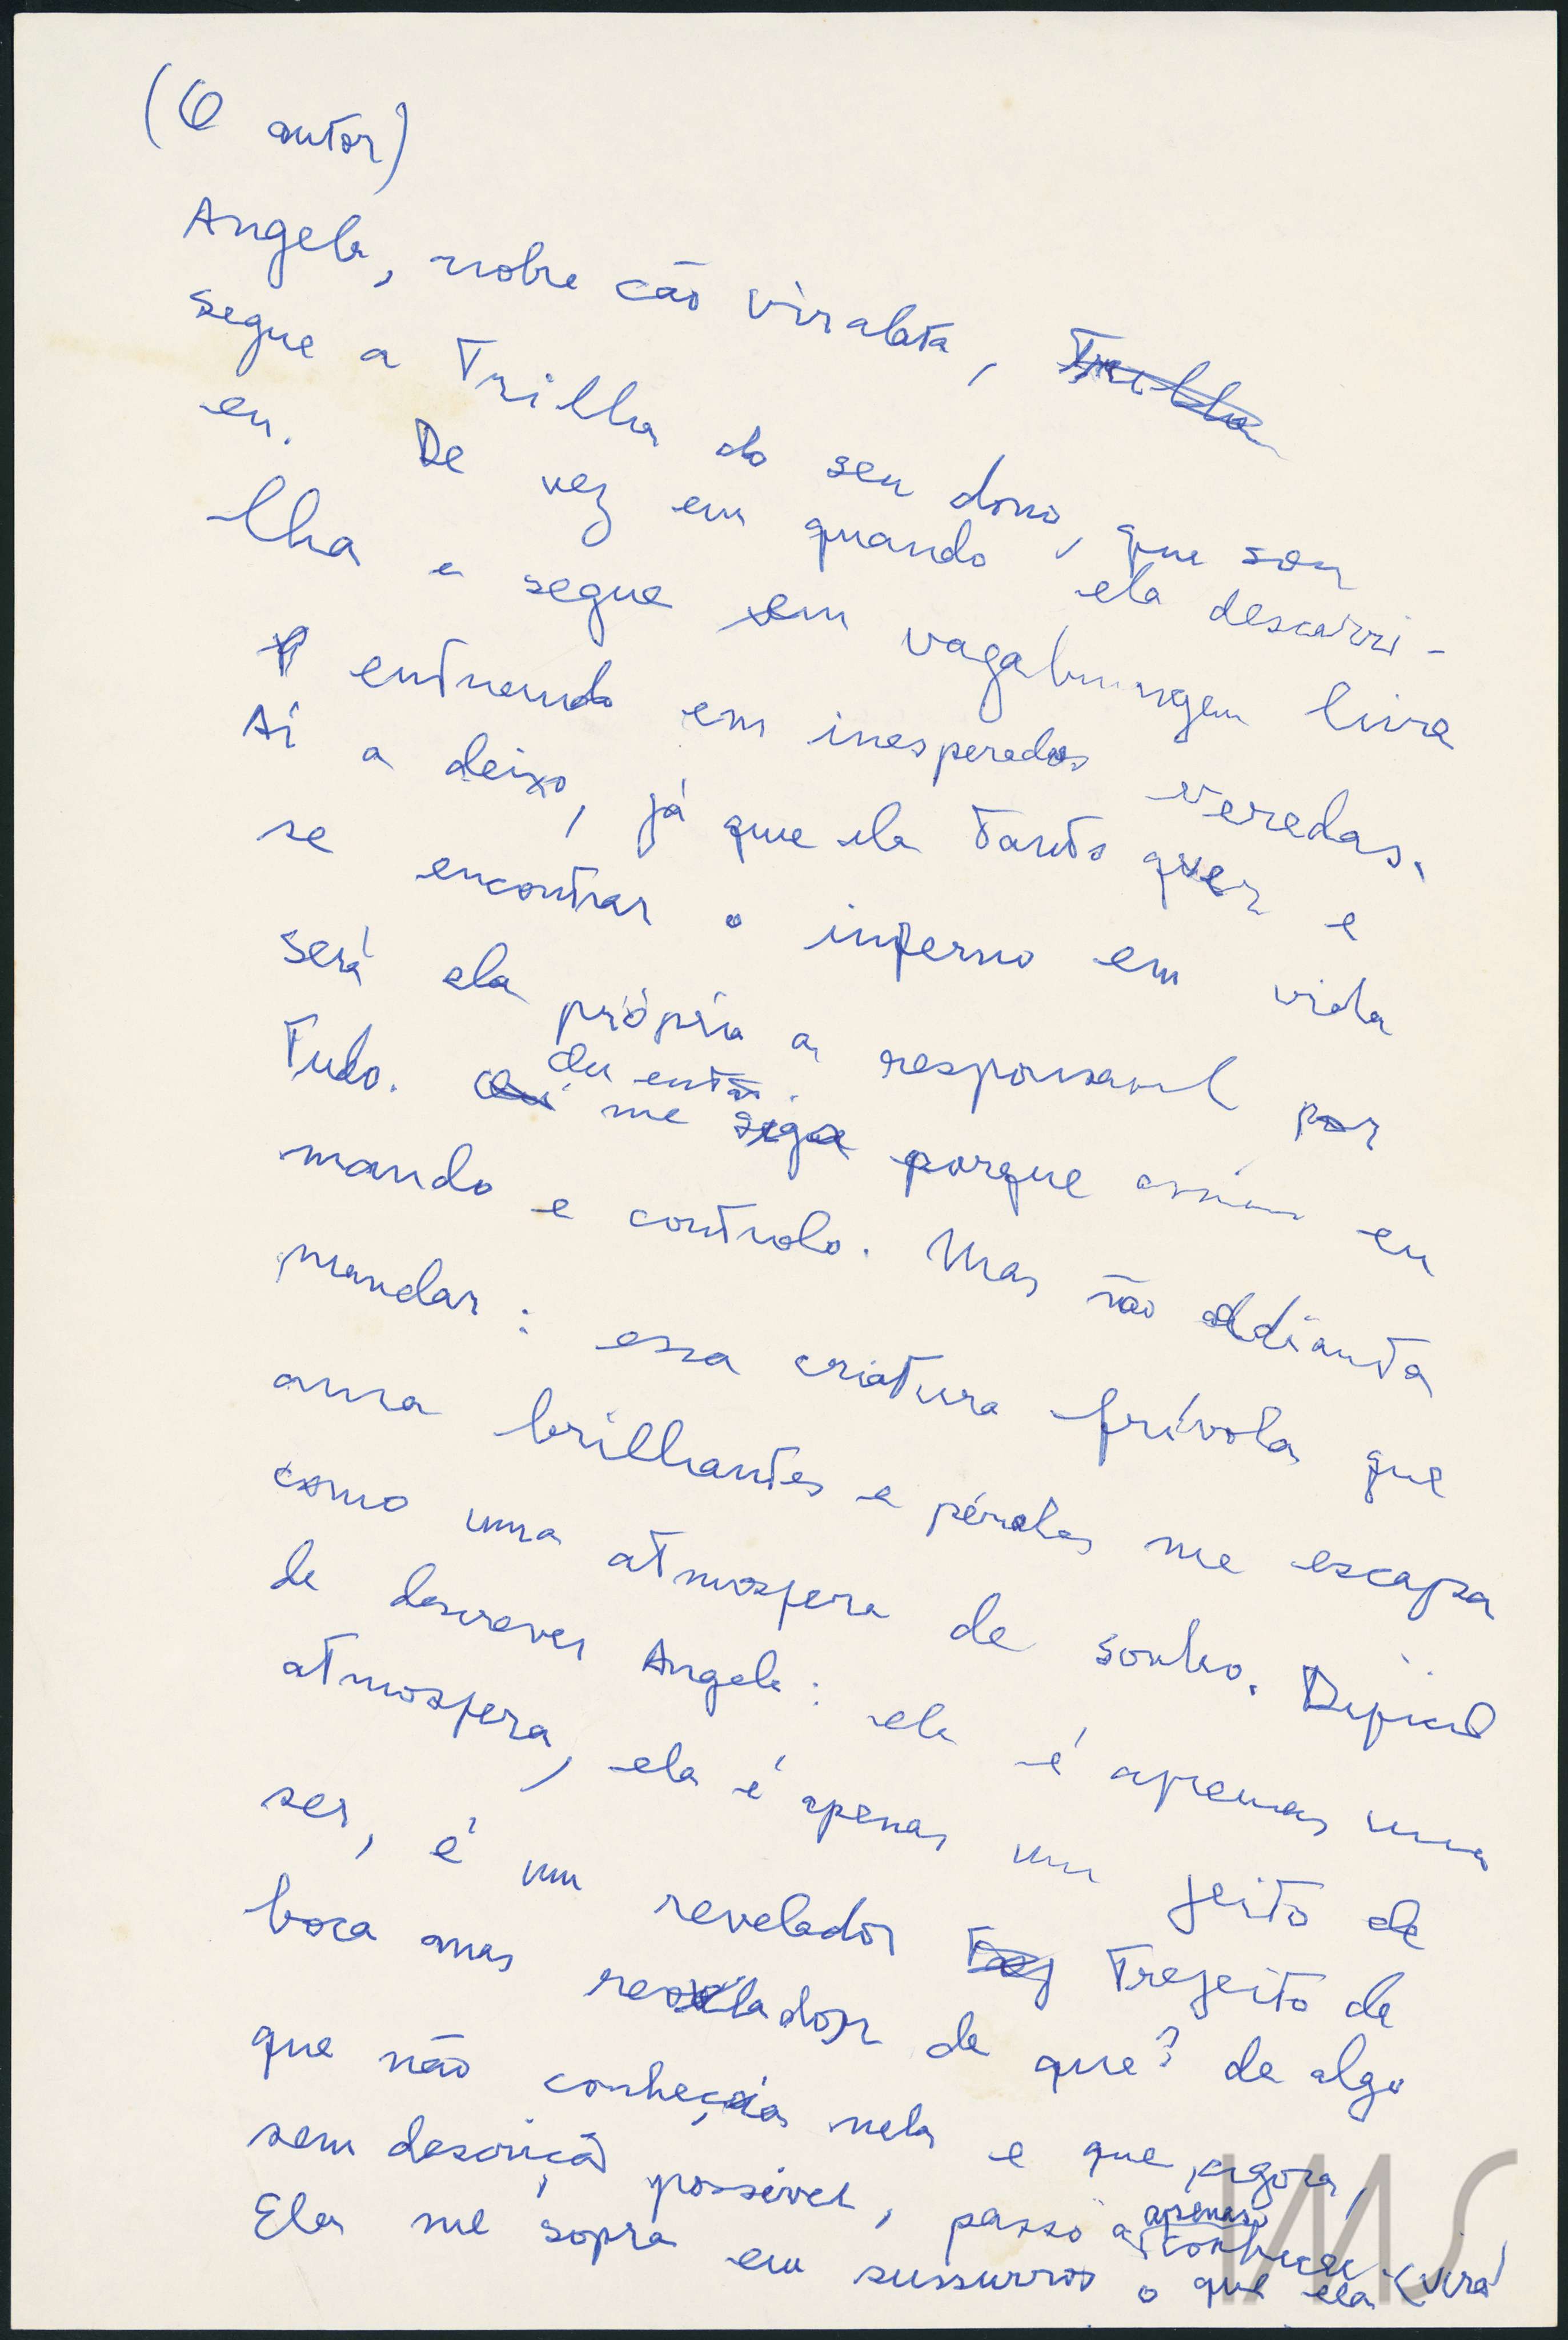 (O autor)
Angela, nobre cão viralata, Trilha
segue a Trilha do seu dono, que sou
eu. De vez em quando ela descarri-
lha e segue em vagabungem livre
entrando em inesperadas veredas.
Aí a deixo, já que ela tanto quer e
se encontrar o inferno em vida
será ela própria a responsavel por
Tudo. eu então
me siga porque assim eu
mando e controlo. Mas não adianta
mandar: essa criatura frívola que
ama brilhantes e pérolas me escapa
como uma atmosfera de sonho. Dificil
de descrever Angela: ela é apenas uma
atmosfera, ela é apenas um jeito de
ser, é um revelador Trej Trejeito de
boca mas revelador de que? de algo
que não conhecia nela e que agora,
sem descrição possivel, passo a apenas conhecer
Ela me sopra em sussurros o que ela (vira
IMS